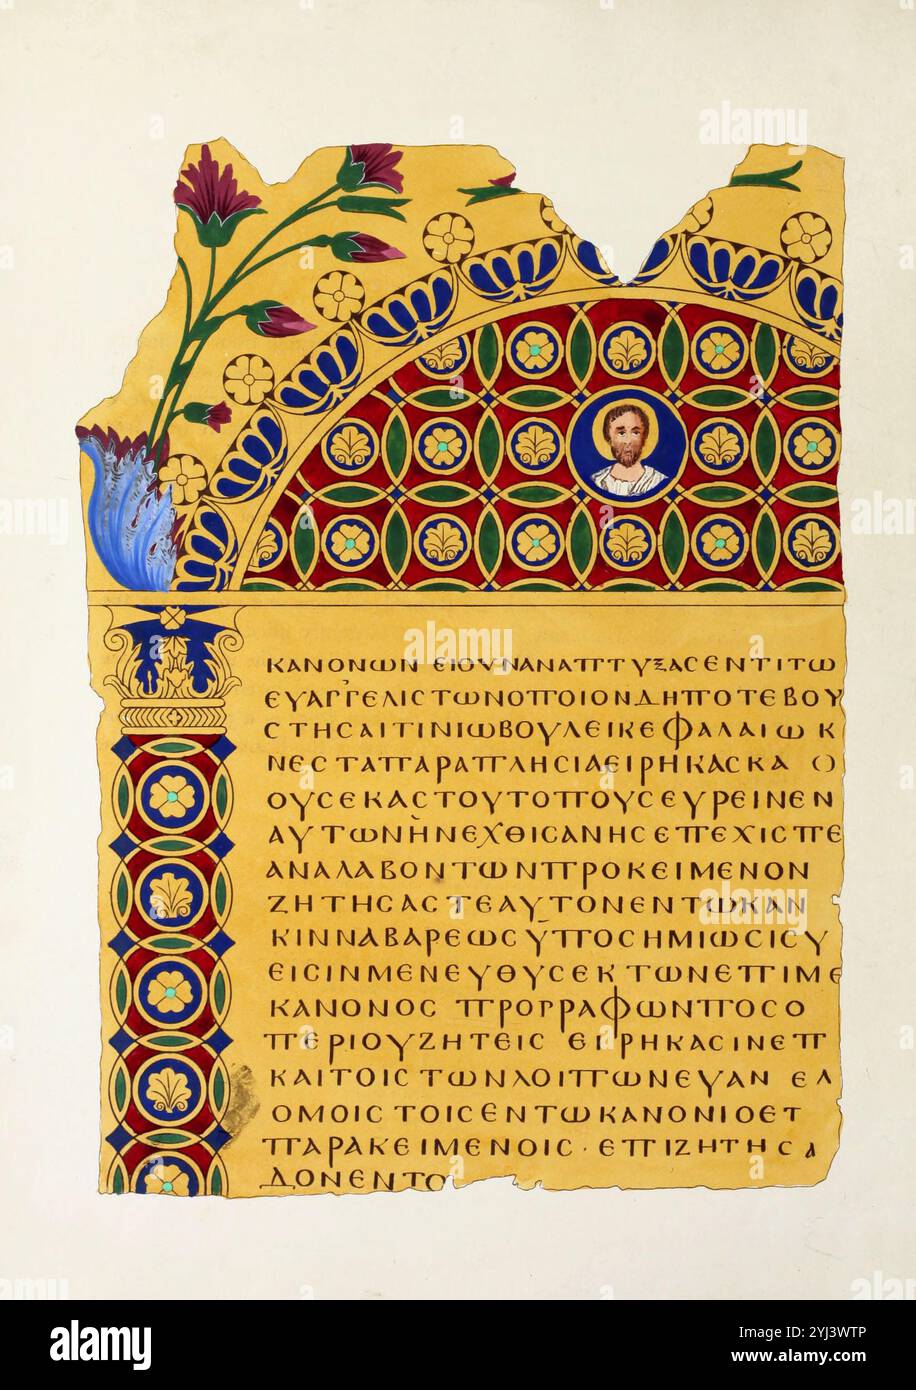 ΚΑΝΟΝΩΝ ΕΙΟΥΝΑΝΑΠΤΥΞΑϹΕΝΤΙΤΩ
ΕΥΑΓΓΕΛΙϹΤΩΝΟΠΟΙΟΝΔΗΠΟΤΕΒΟΥ
ϹΤΗϹΑΙΤΙΝΙΩΒΟΥΛΕΙΚΕΦΑΛΑΙΩΚ
ΝΕϹΤΑΠΑΡΑΠΛΗϹΙΑΕΙΡΗΚΑϹΚΑ Ο
ΟΥϹΕΚΑϹΤΟΥΤΟΠΟΥϹΕΥΡΕΙΝΕΝ
ΑΥΤΩΝῊΝΕΧΘΙϹΑΝΗϹΕΠΕΧΙϹΠΕ
ΑΝΑΛΑΒΟΝΤΩΝΠΡΟΚΕΙΜΕΝΟΝ
ΖΗΤΗϹΑϹΤΕΑΥΤΟΝΕΝΤΩΚΑΝ
ΚΙΝΝΑΒΑΡΕΩϹΫΠΟϹΗΜΙΩϹΙϹΥ
ΕΙϹΙΝΜΕΝΕΥΘΥϹΕΚΤΩΝΕΠΙΜΕ
ΚΑΝΟΝΟϹ ΠΡΟΓΡΑΦΩΝΠΟϹΟ
ΠΕΡΙΟΥΖΗΤΕΙϹ ΕΙΡΗΚΑϹΙΝΕΠ
ΚΑΙΤΟΙϹΤΩΝΛΟΙΠΩΝΕΥΑΝ ΕΛ
ΟΜΟΙϹΤΟΙϹΕΝΤΩΚΑΝΟΝΙΟΕΤ
ΠΑΡΑΚΕΙΜΕΝΟΙϹ · ΕΠΙΖΗΤΗϹΑ
ΔΟΝΕΝΤΟ
alamy
Image ID: 2YJ3WTP
www.alamy.com